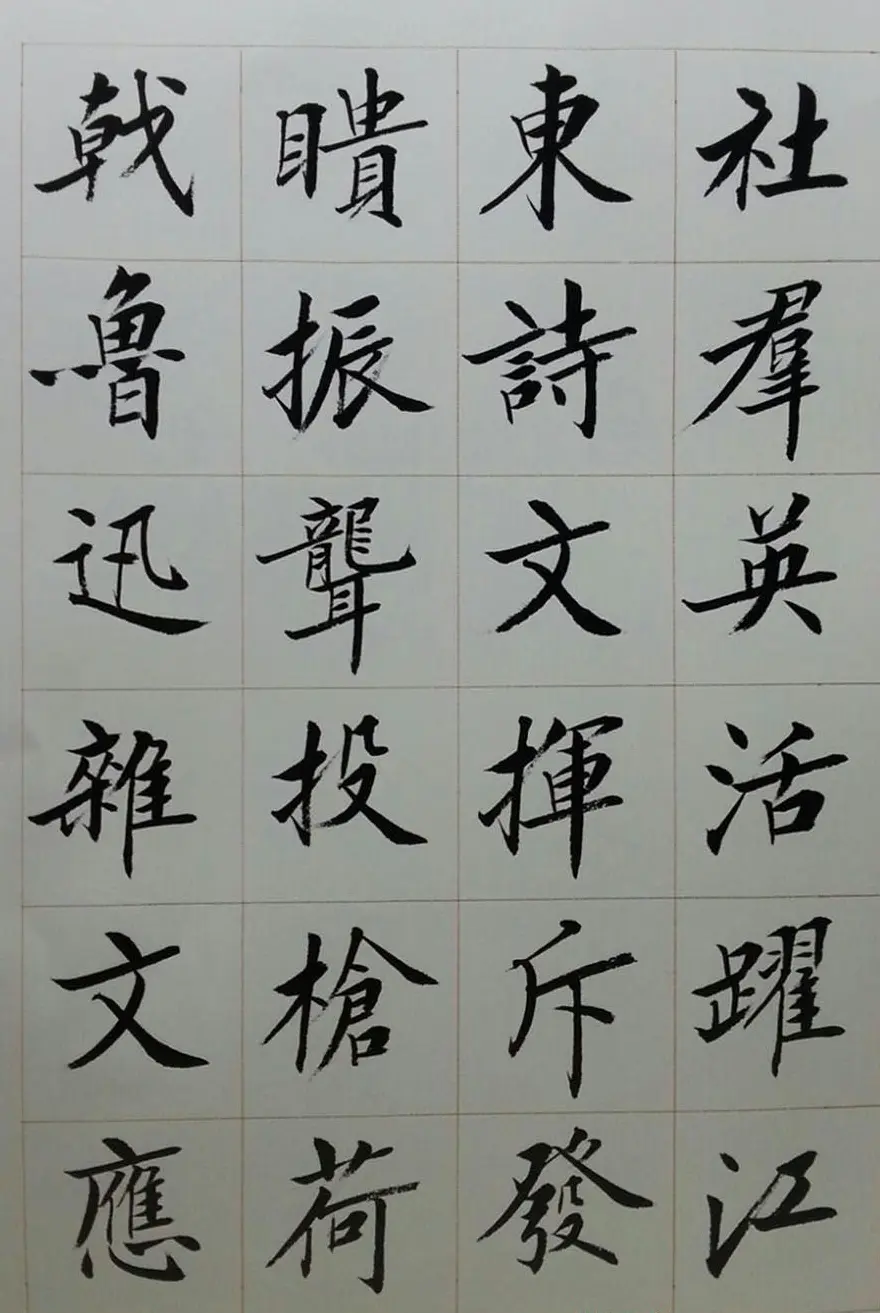 社羣英活躍江
東詩文揮斥發
聵振聾投槍荷
戟魯迅雜文應